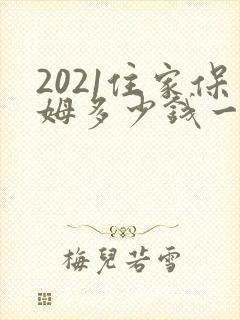 2021住家保
姆多少钱一
梅兒若雪